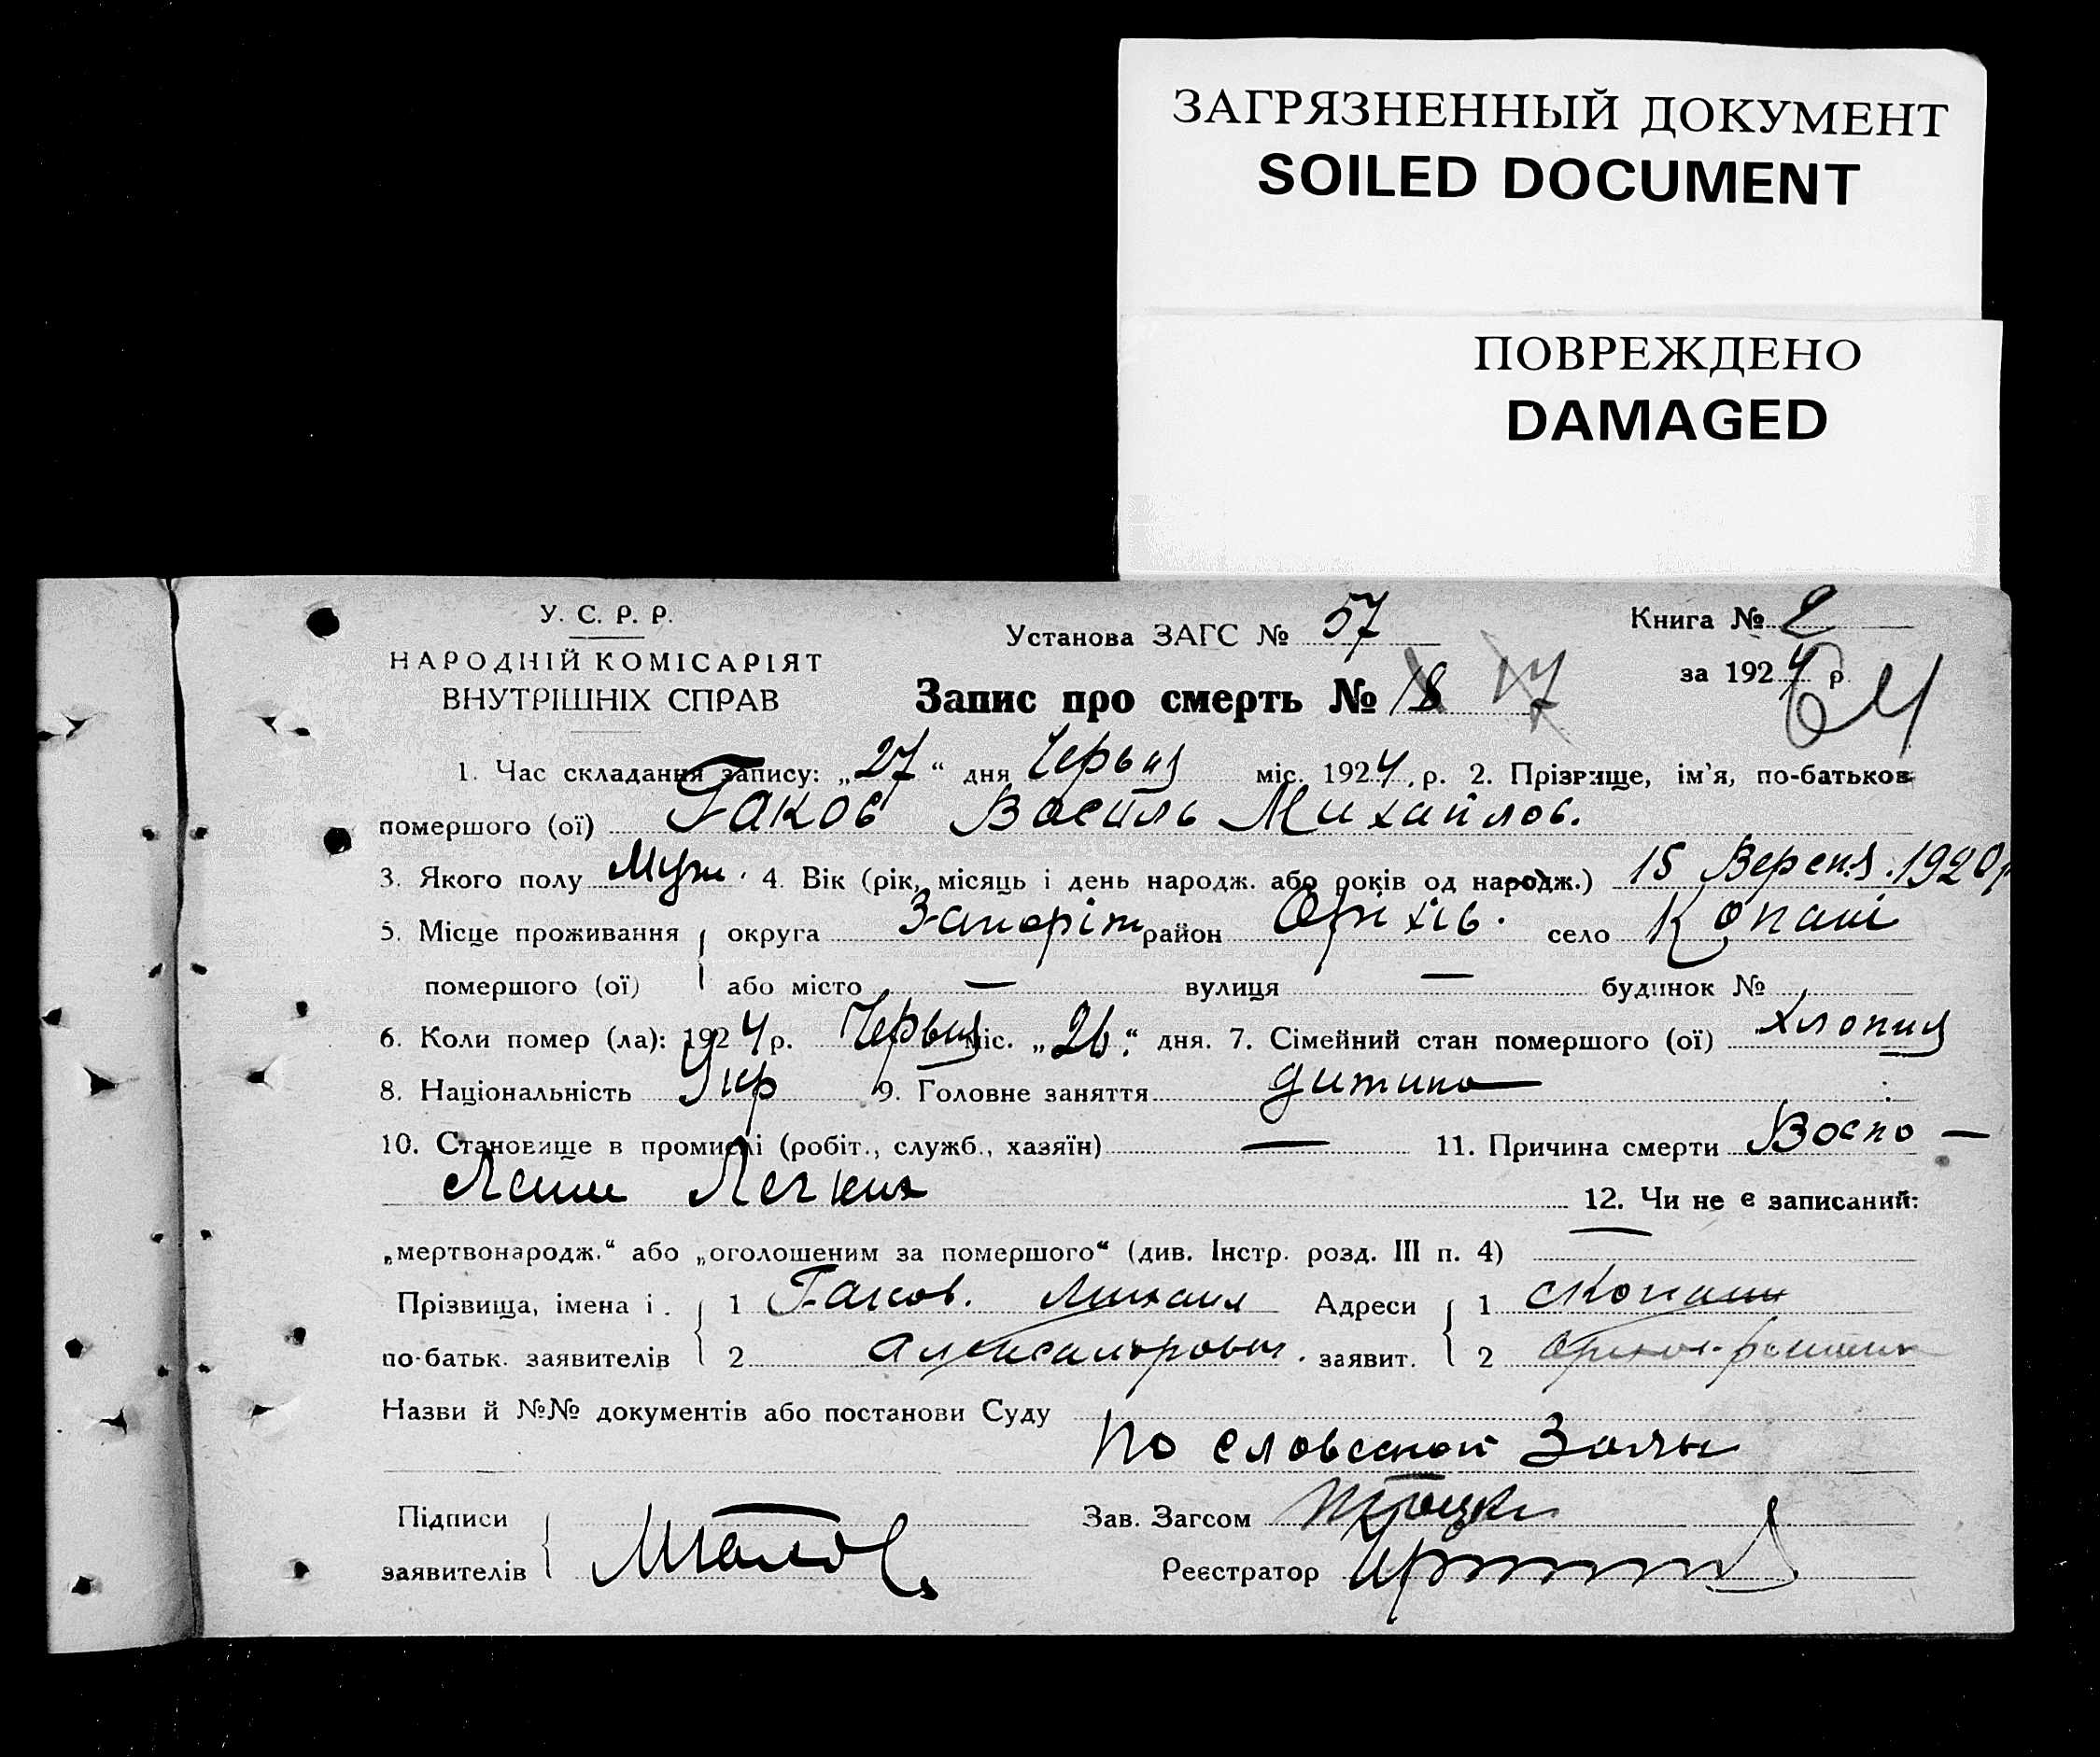 ЗАГРЯЗНЕННЫЙ ДОКУМЕНТ
SOILED DOCUMENT
ПОВРЕЖДЕНО
DAMAGED
У. С. Р. Р.
НАРОДНІЙ КОМІСАРІЯТ
ВНУТРІШНІХ СПРАВ
Установа ЗАГС № 57
Книга № 2
за 1924 р
64
Запис про смерть № 18 17
1. Час складання запису: „27“ дня Червня міс. 1924 р. 2. Прізвище, ім'я, по-батьков
помершого (ої) Гаков Василь Михайлов.
3. Якого полу Муж. 4. Вік (рік, місяць і день народж. або років од народж.) 15 Вересня. 1920р
5. Місце проживання округа Запоріж район Оріхів. село Копані
помершого (ої) або місто — вулиця — будинок №
6. Коли помер (ла): 1924 р. Червня міс. „26.“ дня. 7. Сімейний стан помершого (ої) хлопця
8. Національність Укр 9. Головне заняття дитина
10. Становище в промислі (робіт., служб., хазяїн) — 11. Причина смерти Воспо —
ление Легких 12. Чи не є записаний:
„мертвонародж.“ або „оголошеним за помершого“ (див. Інстр. розд. III п. 4) —
Прізвища, імена і 1 Гаков. Михаил Адреси 1 с Копани
по-батьк. заявителів 2 Александрович. заявит. 2 Орехов. района
Назви й №№ документів або постанови Суду
По словесной
Підписи
Зав. Загсом
заявителів
Реєстратор